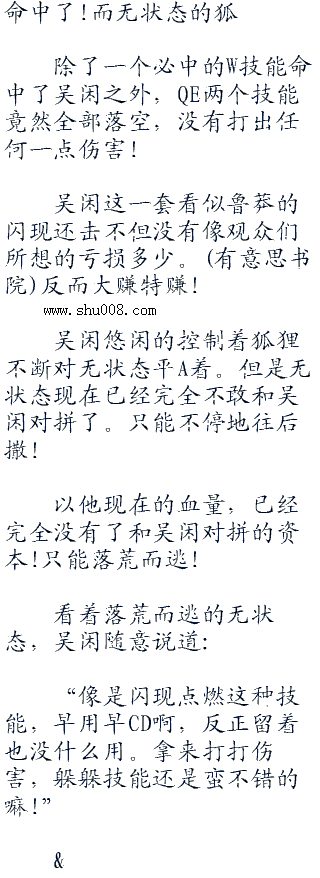 命中了!而无状态的狐
除了一个必中的W技能命
中了吴闲之外，QE两个技能
竟然全部落空，没有打出任
何一点伤害!
吴闲这一套看似鲁莽的
闪现还去不但没有像观众们
所想的亏损多少。(有意思书
院)反而大赚特赚!
www.shu008.com
吴闲悠闲的控制着狐狸
不断对无状态平A着。但是无
状态现在已经完全不敢和吴
闲对拼了。只能不停地往后
撒!
以他现在的血量，已经
完全没有了和吴闲对拼的资
本!只能落荒而逃!
看着落荒而逃的无状
态，吴闲随意说道:
“像是闪现点燃这种技
能，早用早CD啊，反正留着
也没什么用。拿来打打伤
害，躲躲技能还是蛮不错的
嘛!”
&